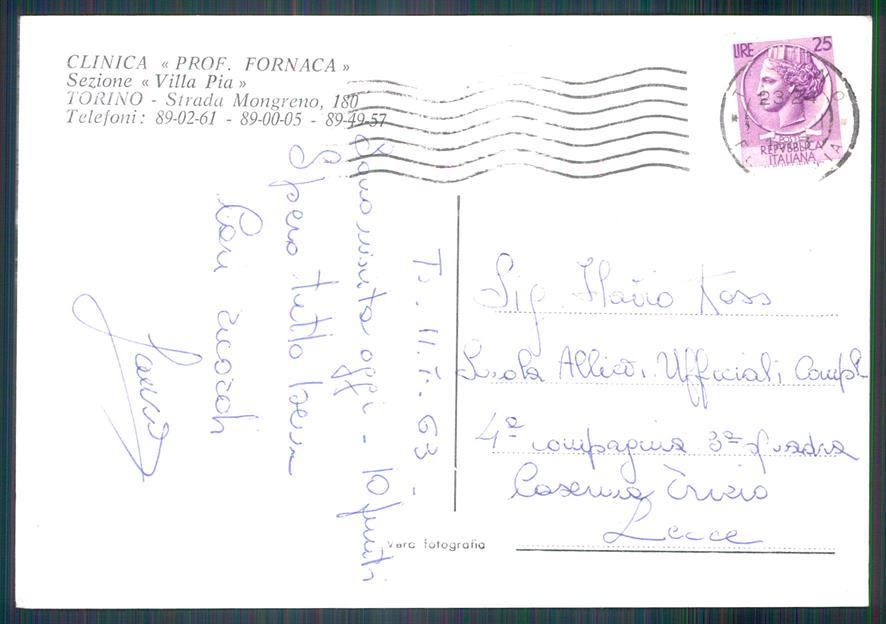 CLINICA « PROF. FORNACA »
Sezione « Villa Pia »
TORINO - Strada Mongreno, 180
Telefoni: 89-02-61 - 89-00-05 - 89-49-57
LIRE 25
POSTE
REPVBBLICA
ITALIANA
23-24
To. 11.7.63 -
oggi - 10 punti
Spero tutto bene
Cari
Sig. Flavio Koss
Scuola Allievi Ufficiali Compl.
4ª compagnia 3ª squadra
Caserma Trizio
Lecce
Vera fotografia